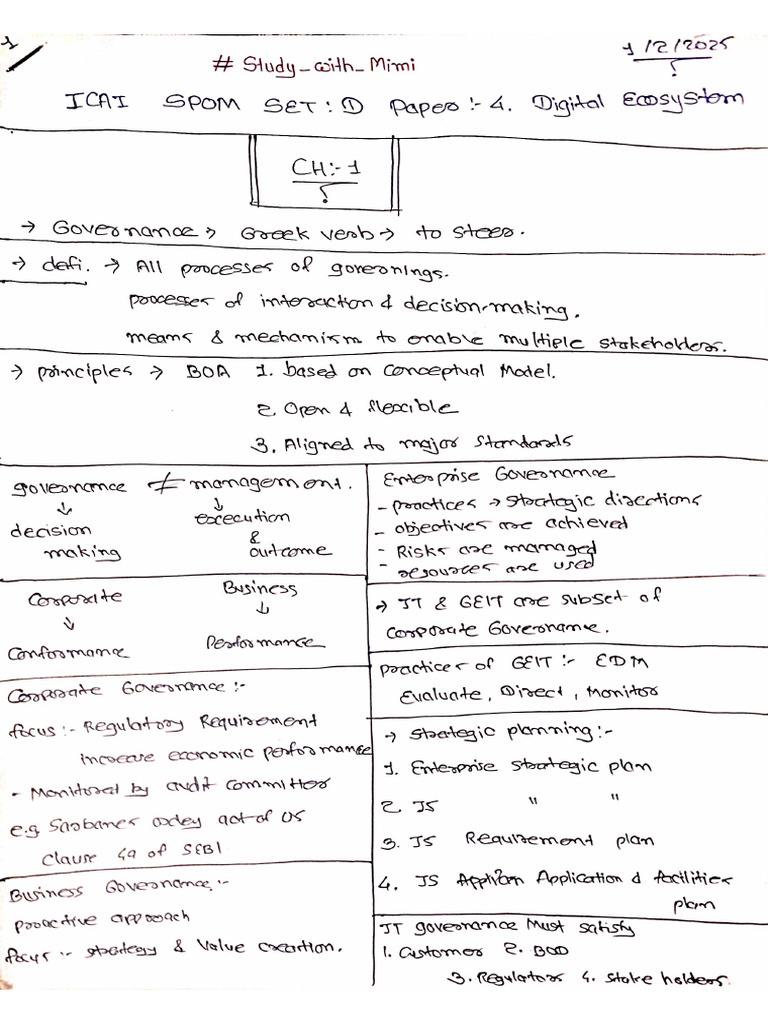 1
# Study_with_Mimi
1/2/2025
ICAI SPOM SET: D Paper :- 4. Digital Ecosystem
CH:- 1
→ Governance → Greek verb → to steer.
→ defi. → All processes of governings.
processes of interaction & decision-making.
means & mechanism to enable multiple stakeholders.
→ principles → BOA 1. based on Conceptual Model.
2. Open & flexible
3. Aligned to major Standards
governance ≠ management.
↓ ↓
decision making
execution & outcome
Corporate Business
↓ ↓
Conformance Performance
Corporate Governance :-
focus :- Regulatory Requirement
increase economic performance
- Monitored by audit committee
e.g Sarbanes oxley act of US
Clause 49 of SEBI
Business Governance :-
proactive approach
focus :- strategy & value creation.
Enterprise Governance
- practices → strategic directions
- objectives are achieved
- Risks are managed
- resources are used
→ IT & GEIT are subset of
Corporate Governance.
practices of GEIT :- EDM
Evaluate, Direct, Monitor
→ Strategic planning :-
1. Enterprise strategic plan
2. IS " "
3. IS Requirement plan
4. IS Application & facilities
plan
IT governance Must satisfy
1. Customer 2. BOD
3. Regulators 4. Stake holders.